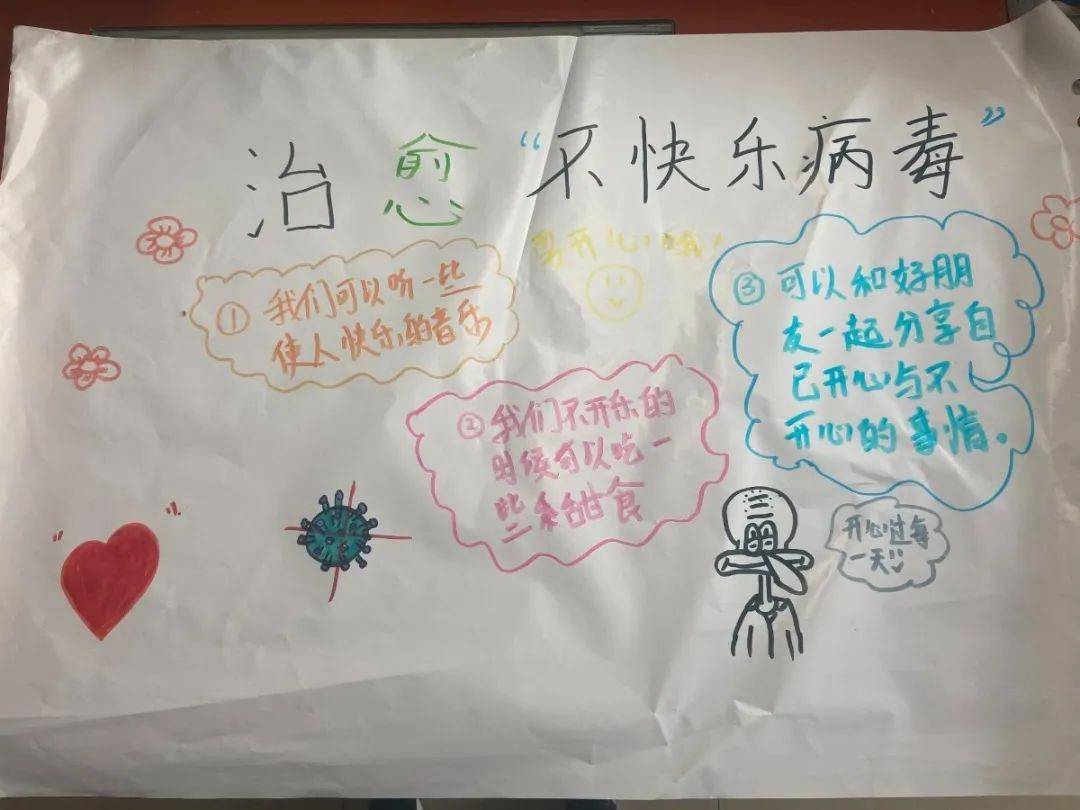 治愈“不快乐病毒”
要开心哦！
① 我们可以听一些
使人快乐的音乐
② 我们不开乐的
时候可以吃一
些甜食
③ 可以和好朋
友一起分享自
己开心与不
开心的事情。
开心过每
一天!!